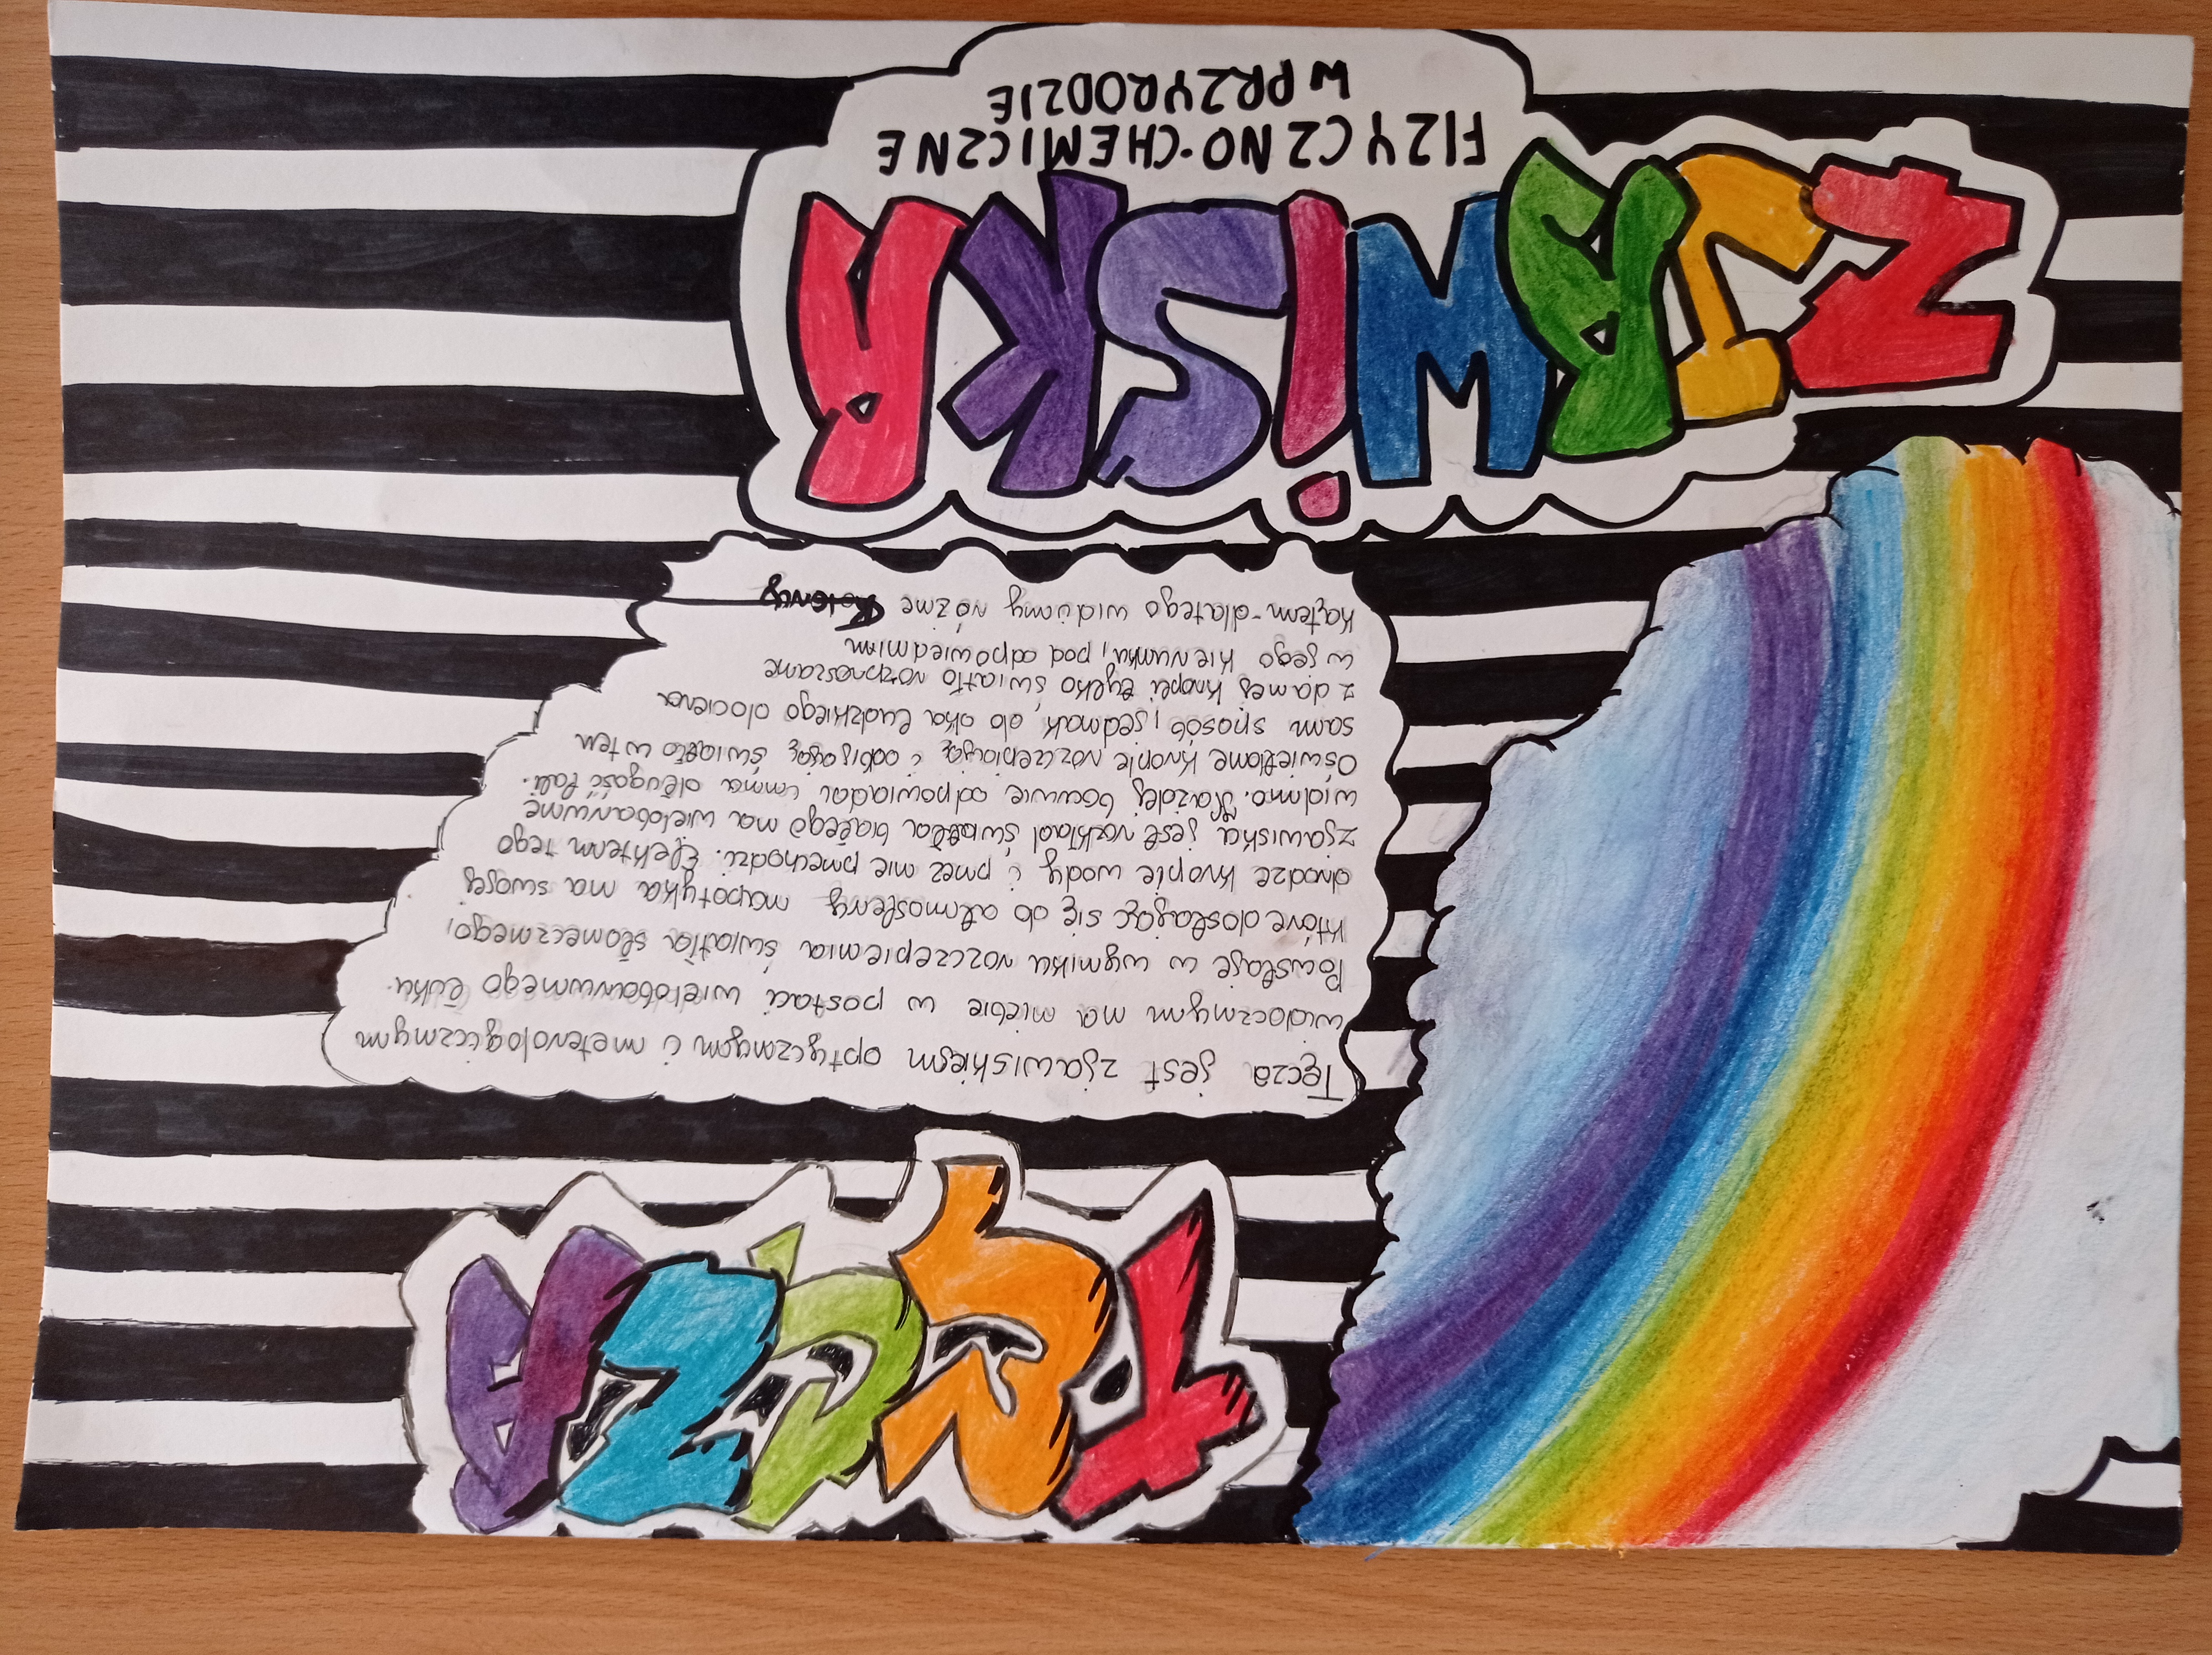 TĘCZA
Tęcza jest zjawiskiem optycznym i meterologicznym
widocznym na niebie w postaci wielobarwnego łuku.
Powstaje w wyniku rozczepienia światła słonecznego,
które dostając się do atmosfery napotyka na swojej
drodze krople wody i przez nie przechodzi. Efektem tego
zjawiska jest rozkład światła białego na wielobarwne
widmo. Każdej barwie odpowiada inna długość fali.
Oświetlone krople rozczepiają i odbijają światło w ten
sam sposób, jednak do oka ludzkiego dociera
z danej kropli tylko światło rozproszone
w jego kierunku, pod odpowiednim
kątem - dlatego widzimy różne kolory
ZJAWISKA
FIZYCZNO-CHEMICZNE
W PRZYRODZIE